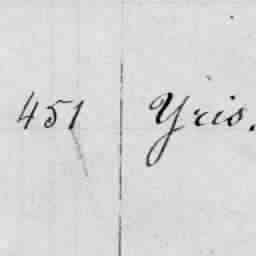 451 Yris.